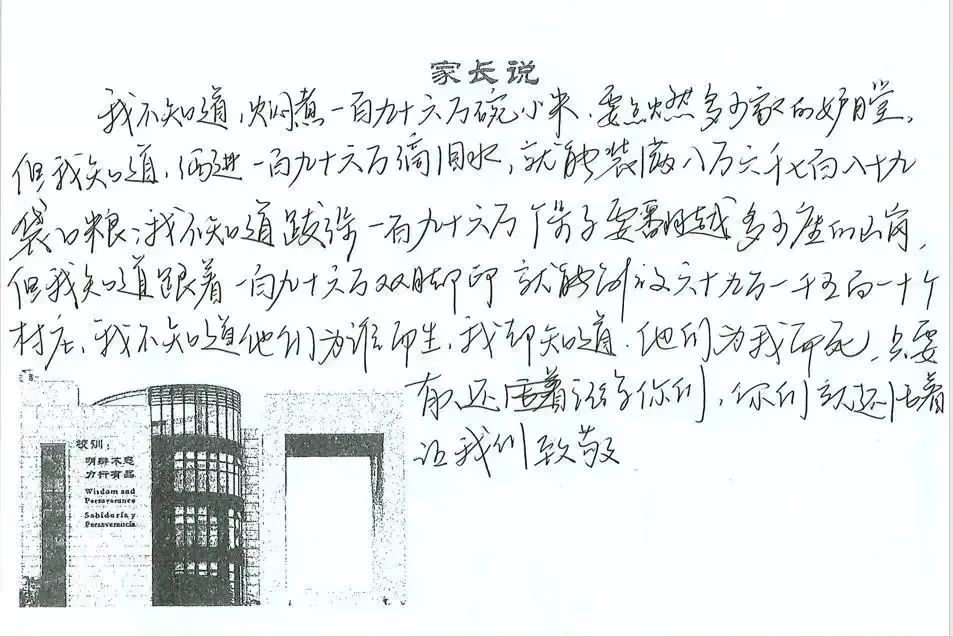 家长说
我不知道，焖煮一百九十六万碗小米，要点燃多少家的炉膛，
但我知道，洒进一百九十六万滴泪水，就能装满八万六千七百八十九
袋口粮；我不知道跋涉一百九十六万个身子要翻越多少座的山岗，
但我知道跟着一百九十六万双脚印就能到六十九万一千五百一十个
村庄，我不知道他们为谁而生，我却知道，他们为我而死，只要
还活着 你们，你们就还活着
让我们致敬
校训：
明辨不息
力行有恒
Wisdom and
Perseverance
Sabiduría y
Perseverancia